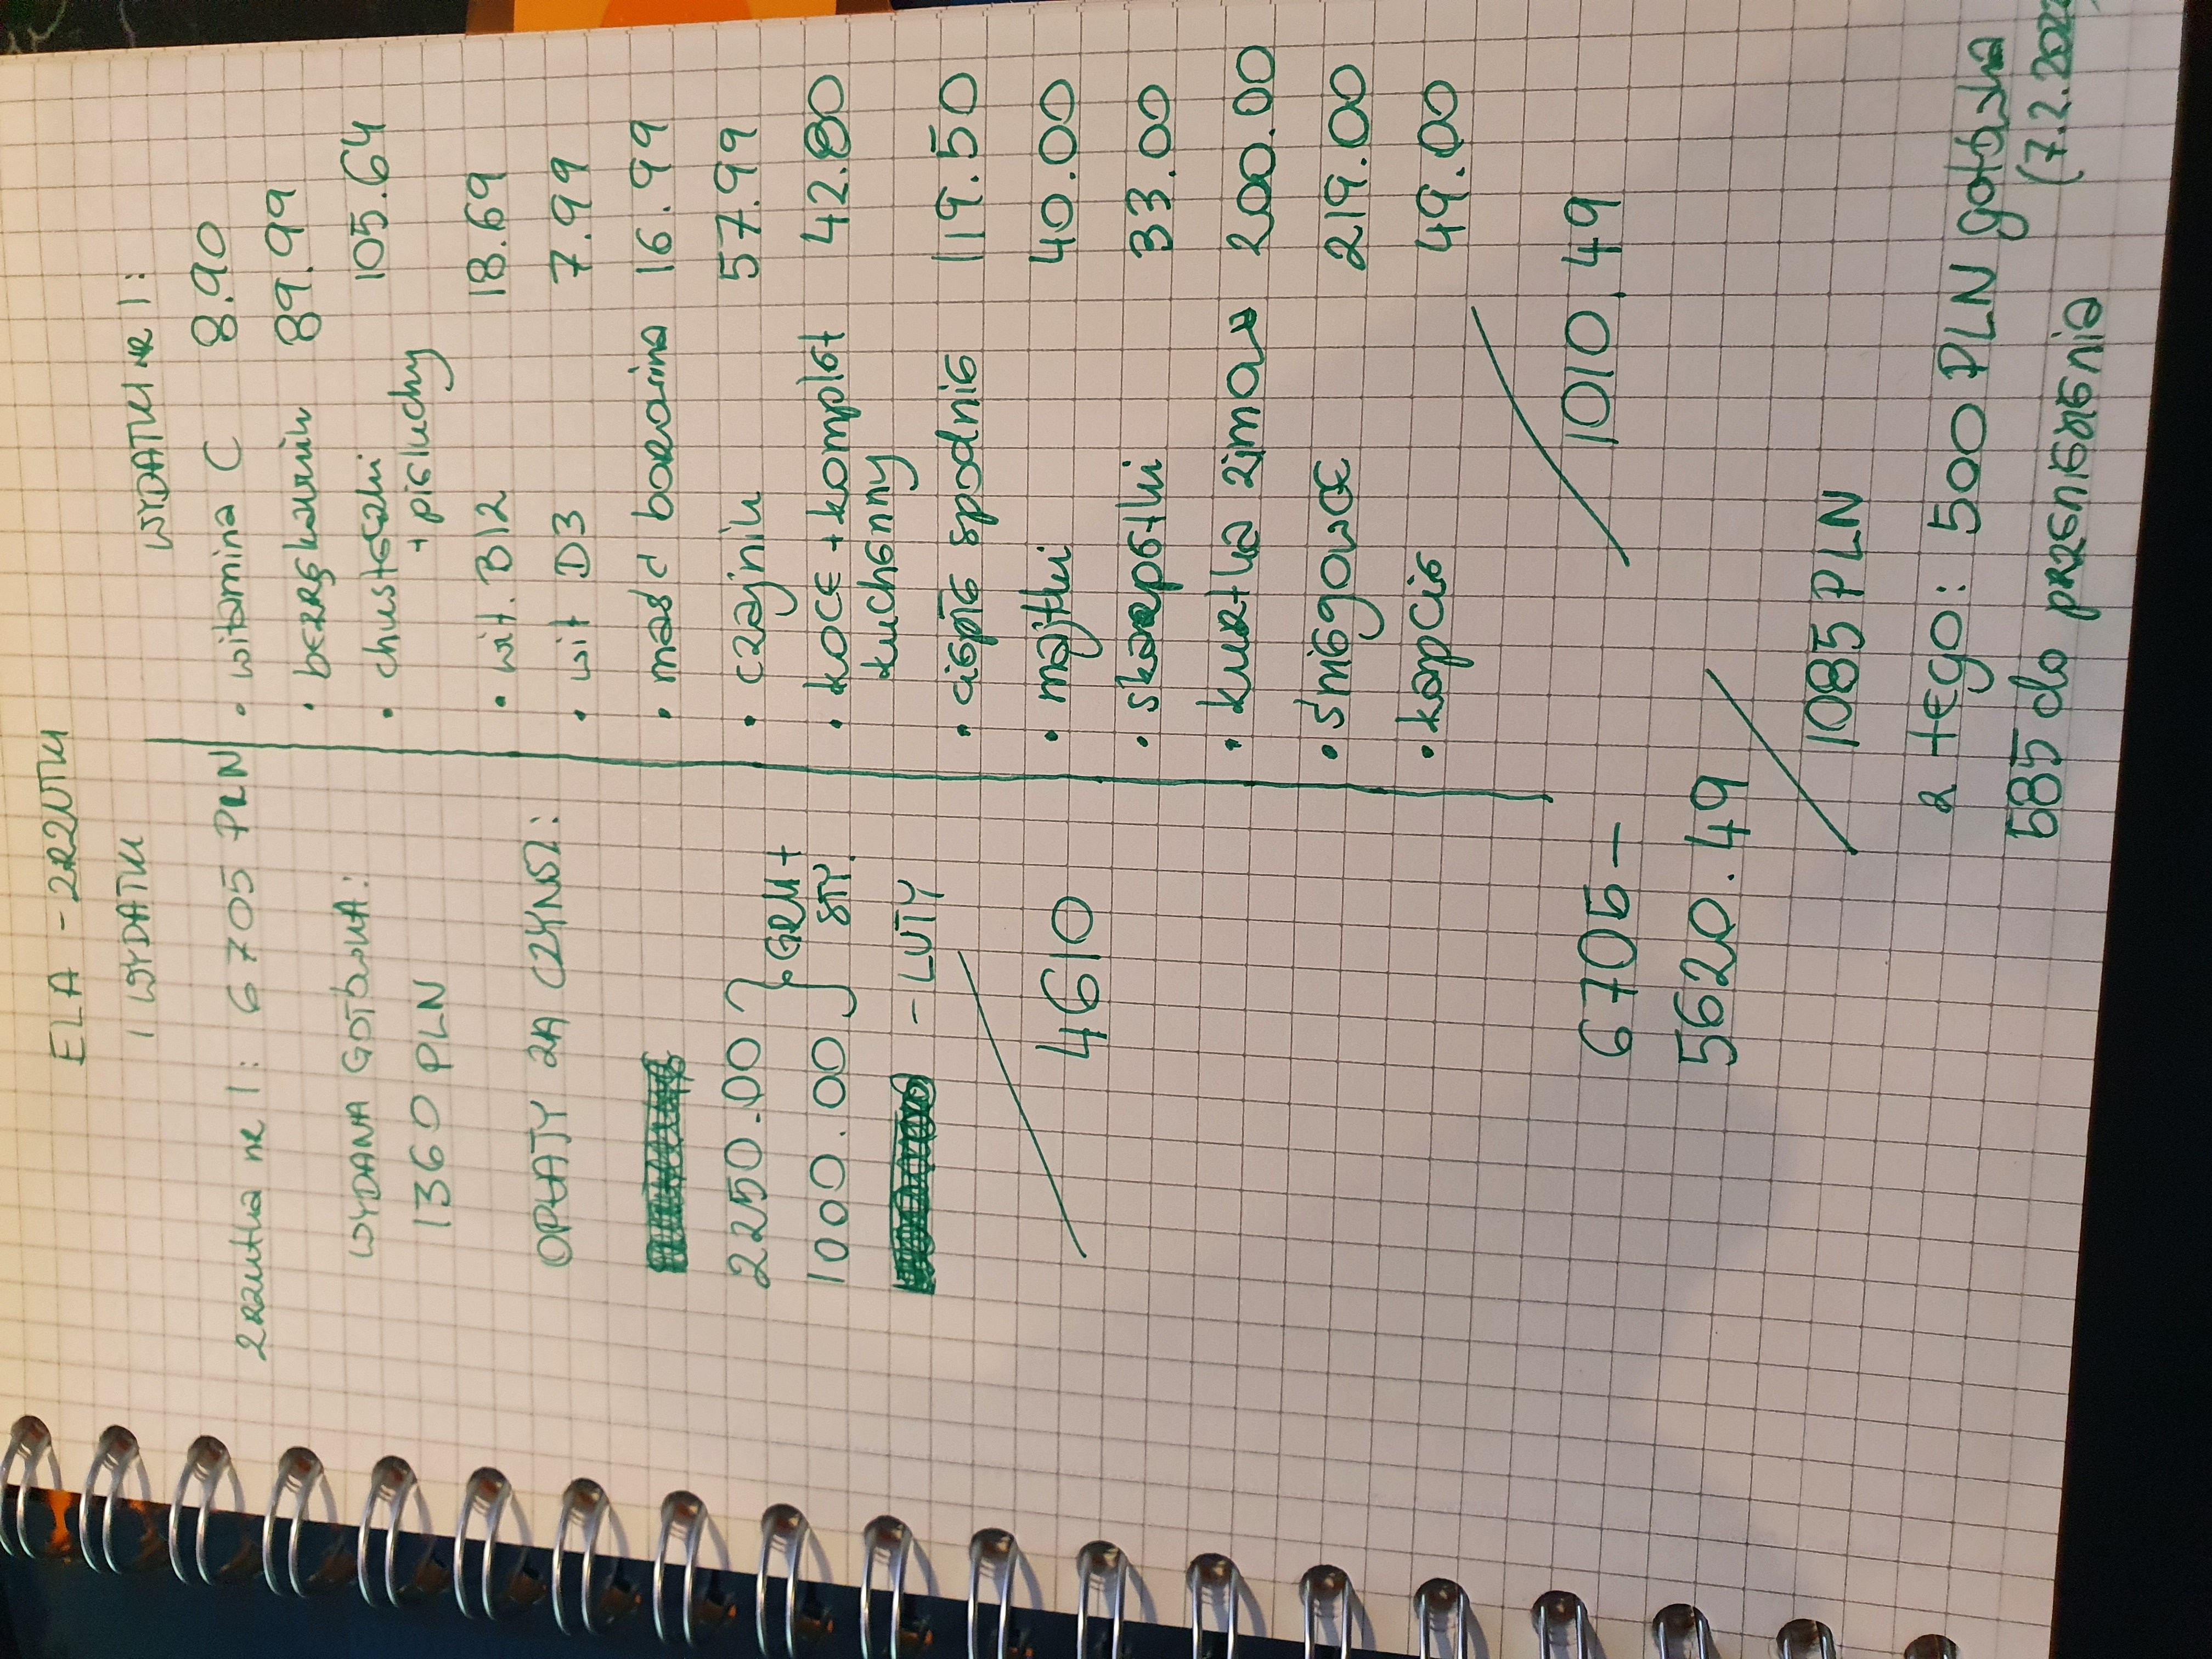 ELA - ZRZUTKI
I WYDATKI
zrzutka nr 1: 6705 PLN
WYDANA GOTÓWKA:
1360 PLN
OPŁATY ZA CZYNSZ:
2250.00 } GRU +
1000.00 } STY.
- LUTY
4610
WYDATKI nr 1:
• witamina C 8.90
• bezrękawnik 89.99
• chusteczki 105.64
+ pieluchy
• wit. B12 18.69
• wit D3 7.99
• maść borowina 16.99
• czajnik 57.99
• koce + komplet 42.80
kuchenny
• ciepłe spodnie 119.50
• majtki 40.00
• skarpetki 33.00
• kurtka zimowa 200.00
• śniegowce 219.00
• kapcie 49.00
1010.49
6705 -
5620.49
1085 PLN
z tego: 500 PLN gotówka
(7.2.202
585 do przeniesienia